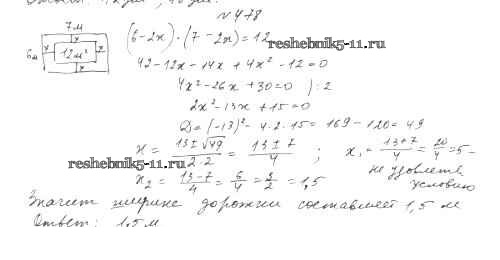 № 478
7 м
6 м
12 м²
x
x
x
x
(6-2x)·(7-2x)=12
reshebnik5-11.ru
42-12x-14x+4x²-12=0
4x²-26x+30=0 ):2
2x²-13x+15=0
D=(-13)²-4·2·15=169-120=49
x = (13±√49)/(2·2) = (13±7)/4 ; x₁ = (13+7)/4 = 20/4 = 5 -
reshebnik5-11.ru
не удовлетв.
условию
x₂ = (13-7)/4 = 6/4 = 3/2 = 1,5
Значит ширина дорожки составляет 1,5 м
Ответ: 1,5 м